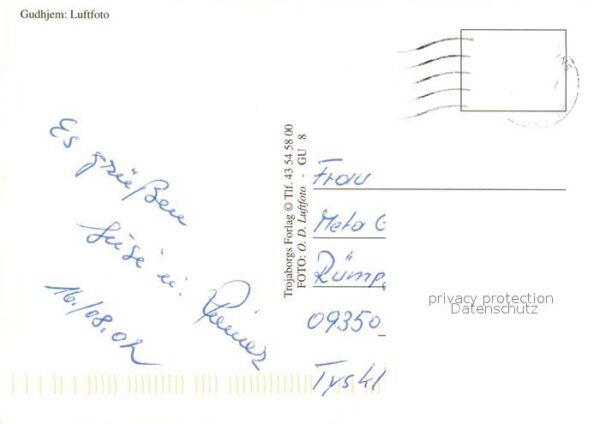 Gudhjem: Luftfoto
Es grüßen
Luise u. Heinz
16./08.02
Trojaborgs Forlag © Tlf. 43 54 58 00
FOTO: O. D. Luftfoto - GU 8
Frau
Meta G
Rümp
09350
Tyskl
privacy protection
Datenschutz